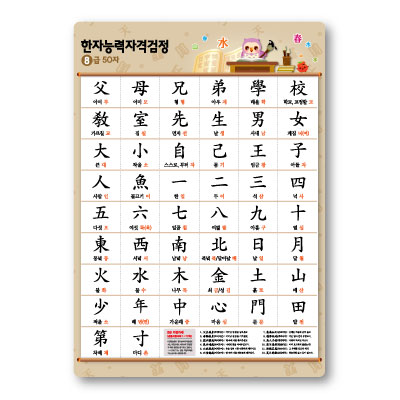 한자능력자격검정
8급 50자
水 春
父 母 兄 弟 學 校
아비 부 어미 모 형 형 아우 제 배울 학 학교, 교정할 교
敎 室 先 生 男 女
가르칠 교 집 실 먼저 선 날 생 사내 남 계집 녀(여)
大 小 自 己 王 子
큰 대 작을 소 스스로, 부터 자 몸 기 임금 왕 아들 자
人 魚 一 二 三 四
사람 인 물고기 어 한 일 두 이 석 삼 넉 사
五 六 七 八 九 十
다섯 오 여섯 육(륙) 일곱 칠 여덟 팔 아홉 구 열 십
東 西 南 北 日 月
동녘 동 서녘 서 남녘 남 북녘 북/달아날 배 날 일 달 월
火 水 木 金 土 山
불 화 물 수 나무 목 쇠 금/성 김 흙 토 메 산
少 年 中 心 門 田
적을 소 해 년(연) 가운데 중 마음 심 문 문 밭 전
第 寸
차례 제 마디 촌